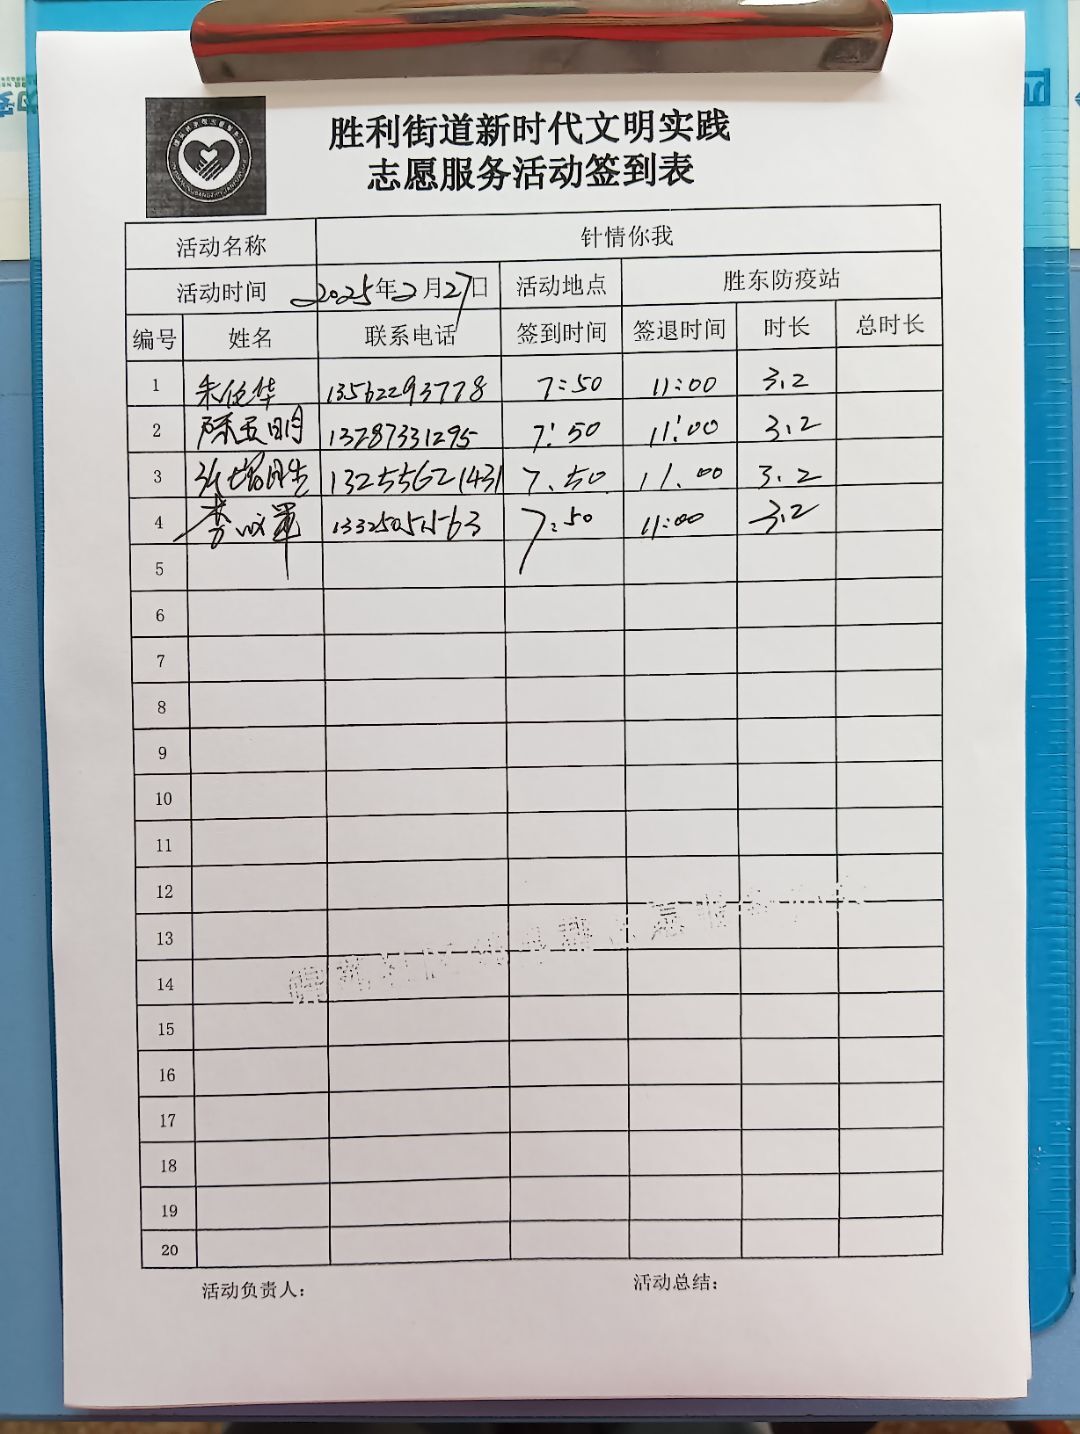 胜利街道新时代文明实践
志愿服务活动签到表
活动名称 针情你我
活动时间 2025年2月27日 活动地点 胜东防疫站
编号 姓名 联系电话 签到时间 签退时间 时长 总时长
1 13562293778 7:50 11:00 3.2
2 13287331295 7:50 11:00 3.2
3 13255621431 7.50 11.00 3.2
4 7:50 11:00 3.2
5
6
7
8
9
10
11
12
13
14
15
16
17
18
19
20
活动负责人: 活动总结: